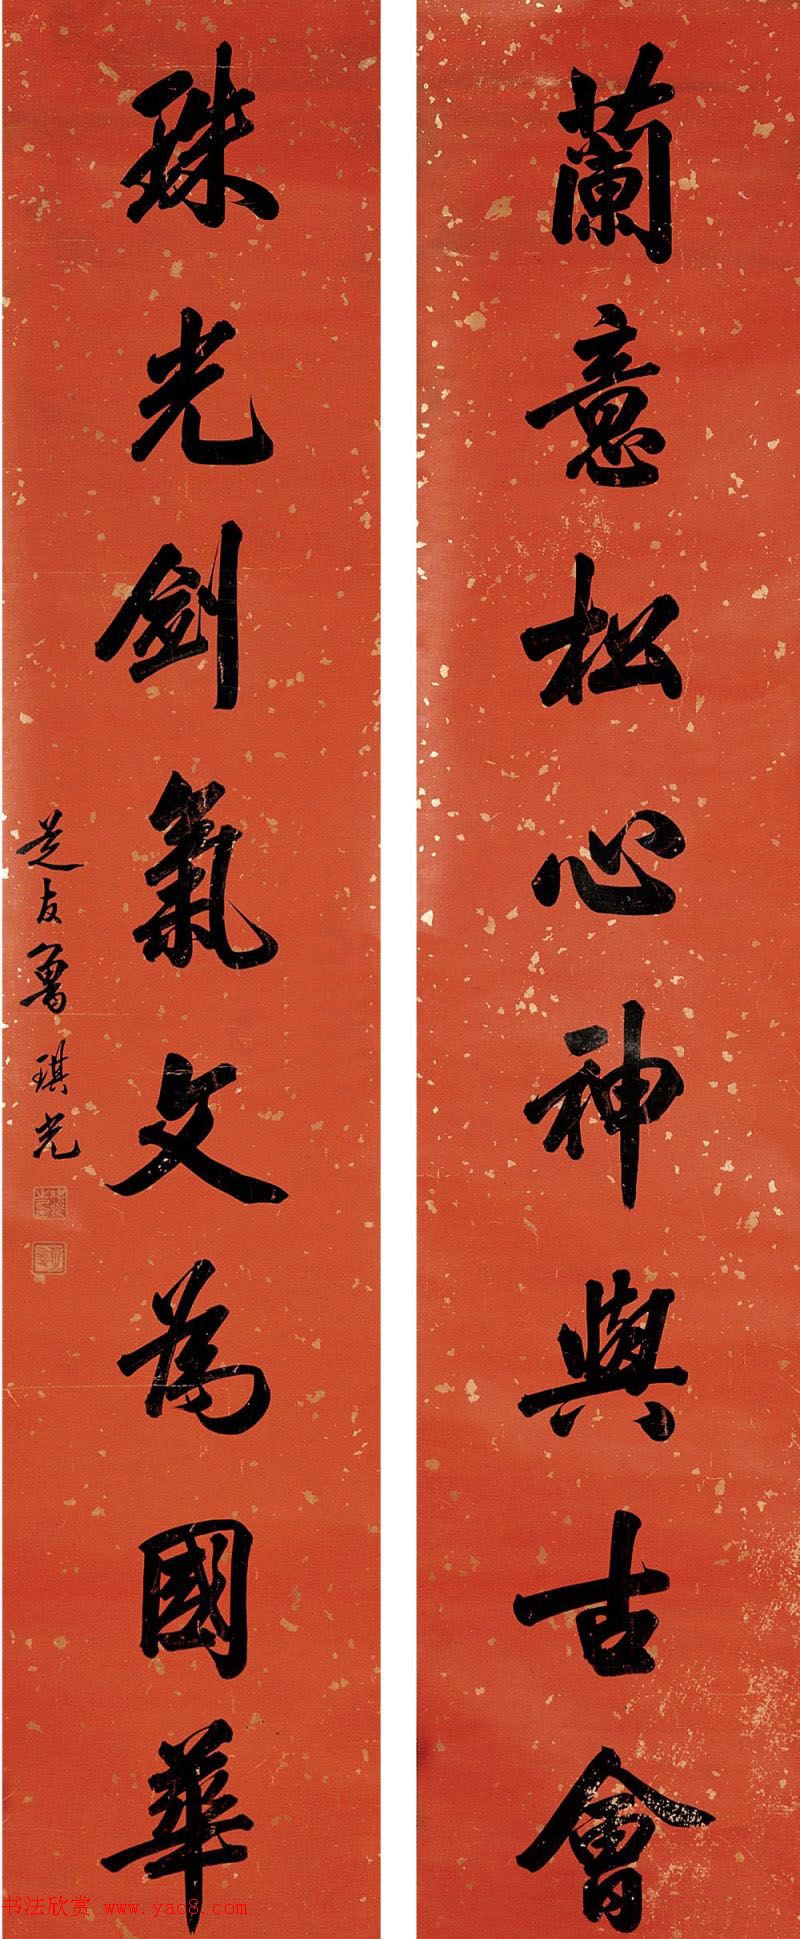 蘭意松心神與古會
珠光劍氣文為國華
芝友魯琪光
书法欣赏 www.yac8.com